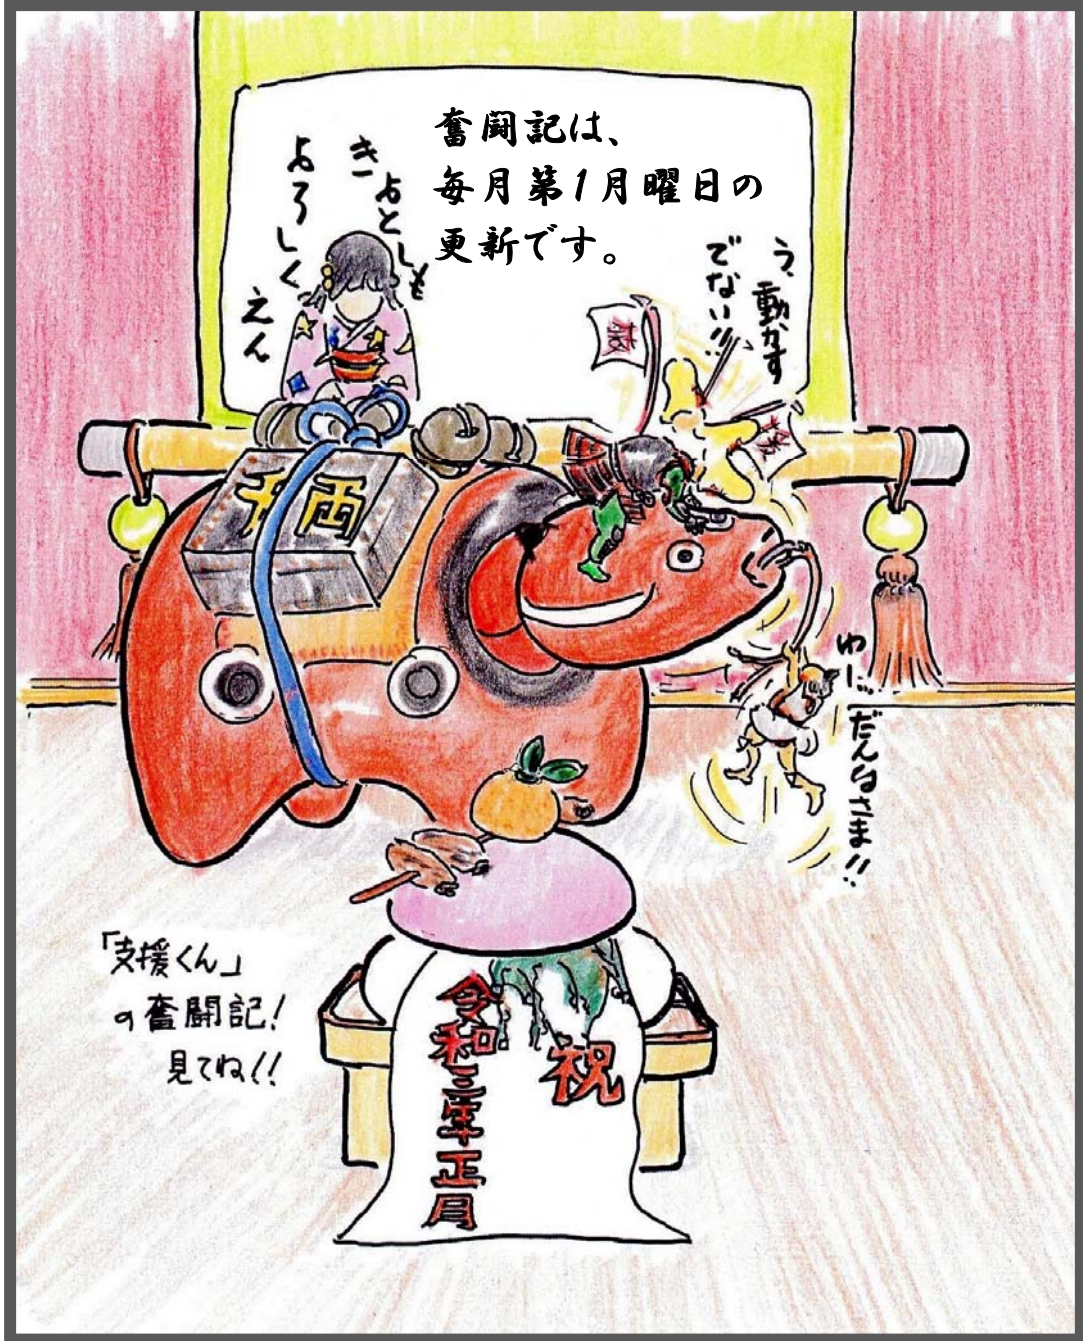 奮闘記は、
毎月第1月曜日の
更新です。
きょとしも
よろしく
えん
う、動かす
でない!!
千両
だんなさま!!
「支援くん」
の奮闘記!
見てね!!
祝
令和三年正月